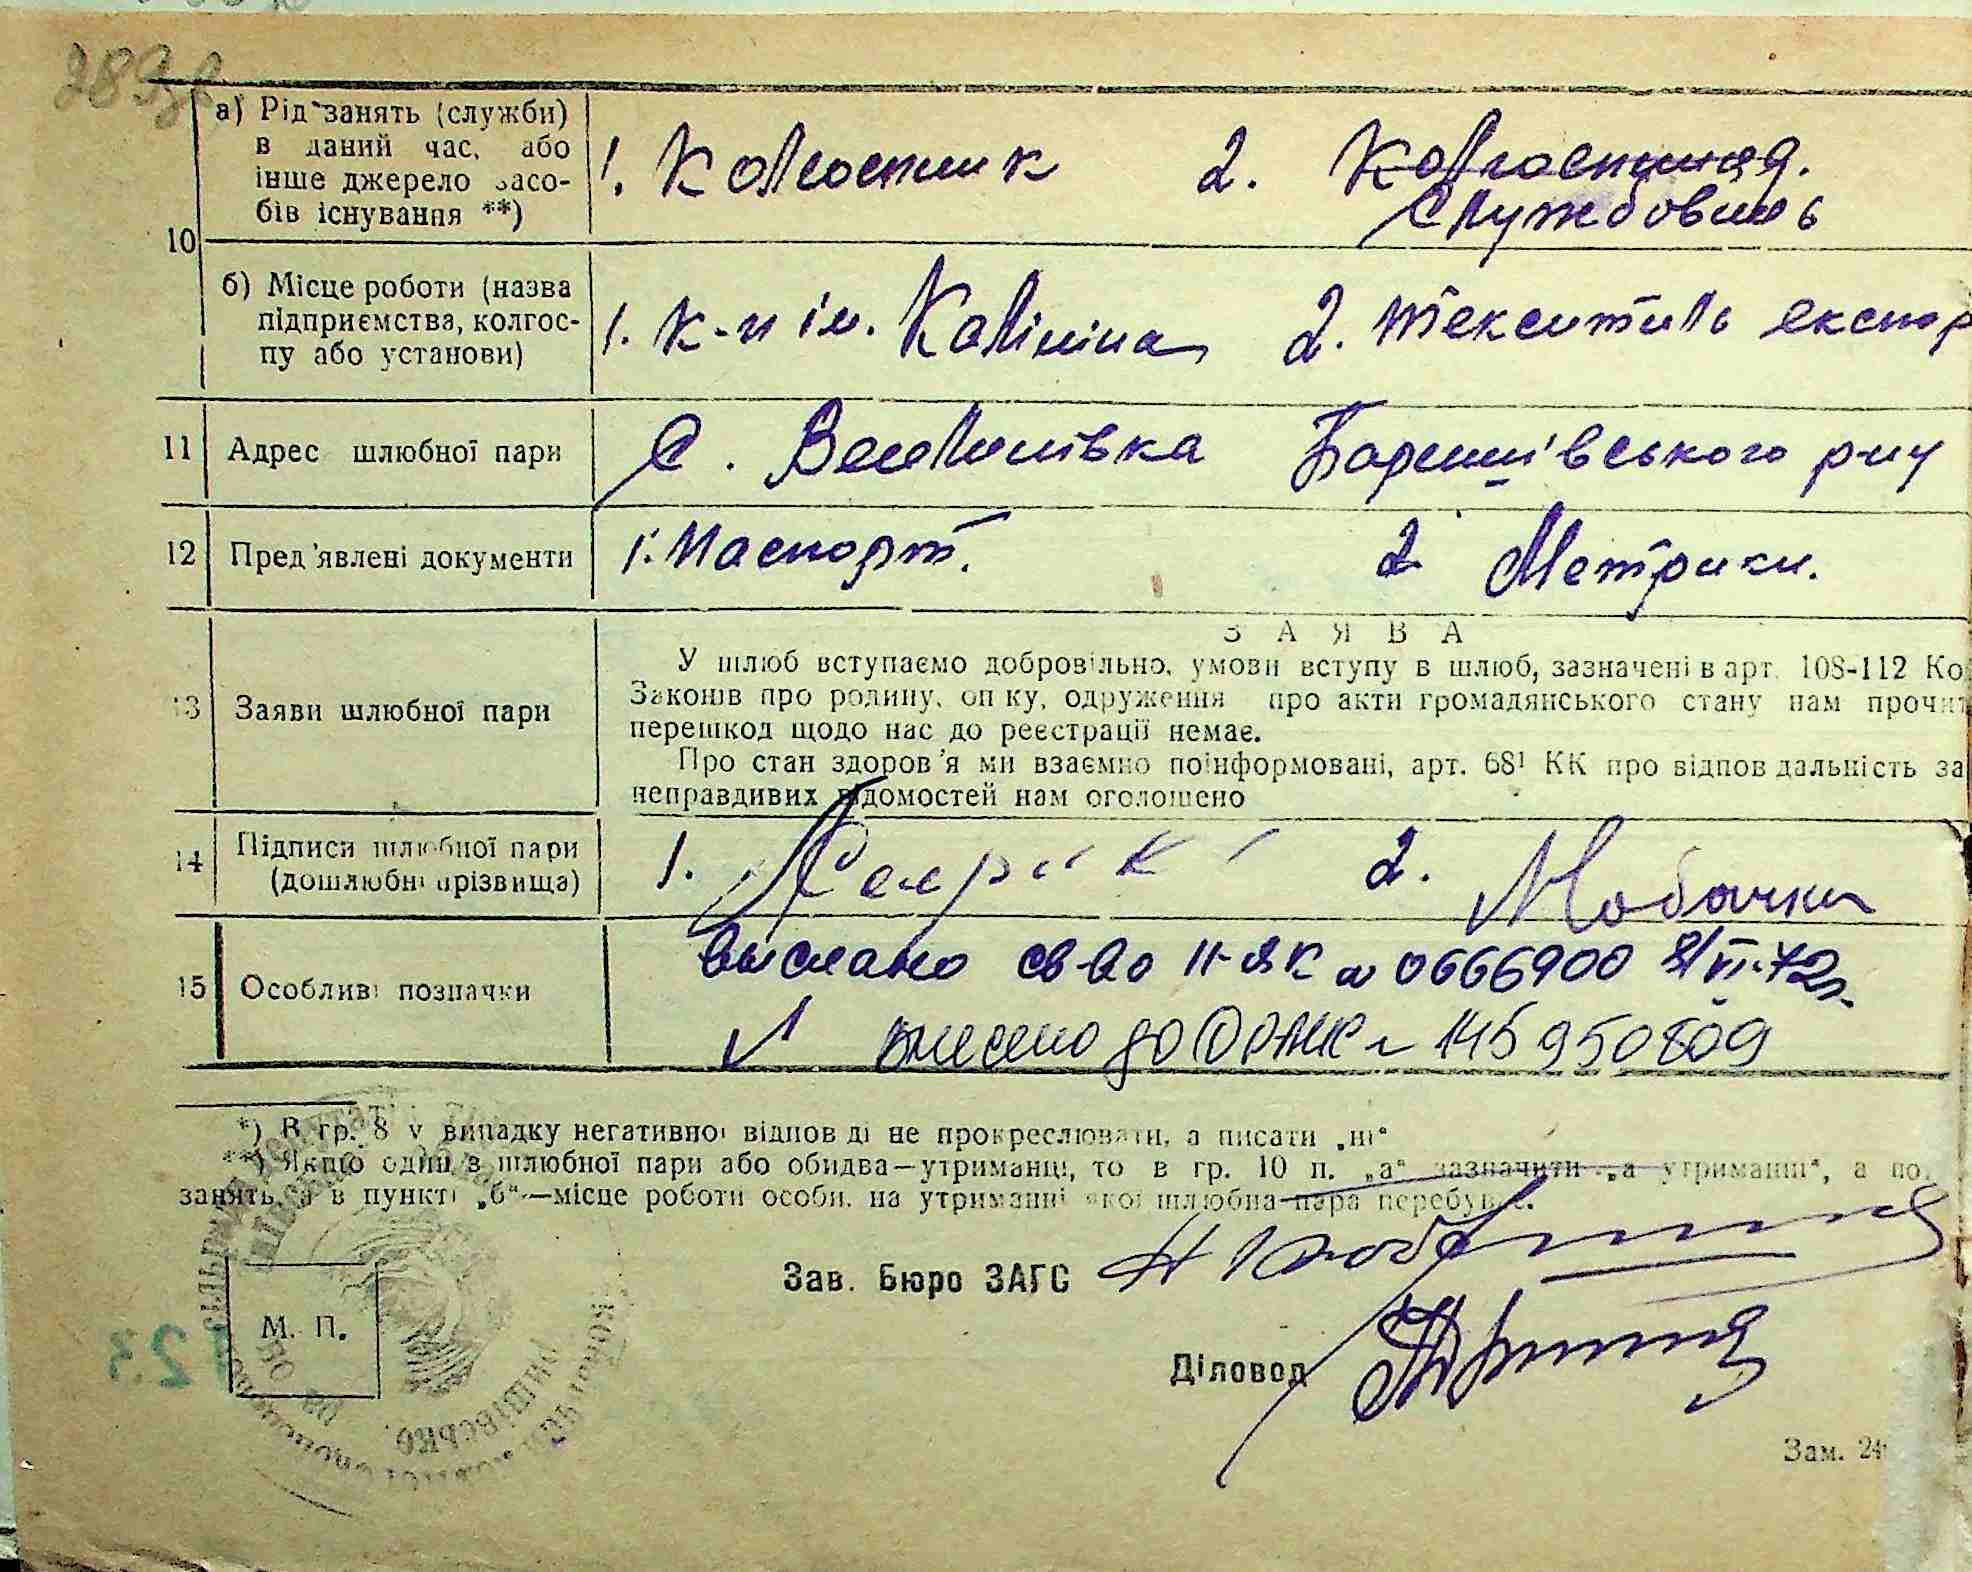 289зв
а) Рід занять (служби)
в даний час, або
інше джерело засо-
бів існування **)
1. Колгоспник 2. Колгоспниця.
Службовець
10
б) Місце роботи (назва
підприємства, колгос-
пу або установи)
1. к-п ім. Калініна 2. Текстиль експор
11 Адрес шлюбної пари
с. Веселинівка Баришівського р-ну
12 Пред'явлені документи
1. Паспорт. 2 Метрики.
ЗАЯВА
13 Заяви шлюбної пари
У шлюб вступаємо добровільно, умови вступу в шлюб, зазначені в арт. 108-112 Ко
Законів про родину, опіку, одруження про акти громадянського стану нам прочит
перешкод щодо нас до реєстрації немає.
Про стан здоров'я ми взаємно поінформовані, арт. 68¹ КК про відповідальність за
неправдивих відомостей нам оголошено
14 Підписи шлюбної пари
(дошлюбні прізвища)
1. 2.
15 Особливі позначки
выслано св-во II-ЯК № 0666900
внесено до № 145950809
*) В гр. 8 у випадку негативної відповіді не прокреслювати, а писати „ні“
**) Якщо один з шлюбної пари або обидва—утриманці, то в гр. 10 п. „а“ зазначити „а утриманні“, а по
занять, а в пункті „б“—місце роботи особи, на утриманні якої шлюбна пара перебуває.
Зав. Бюро ЗАГС
М. П.
123
Діловод
Зам. 24